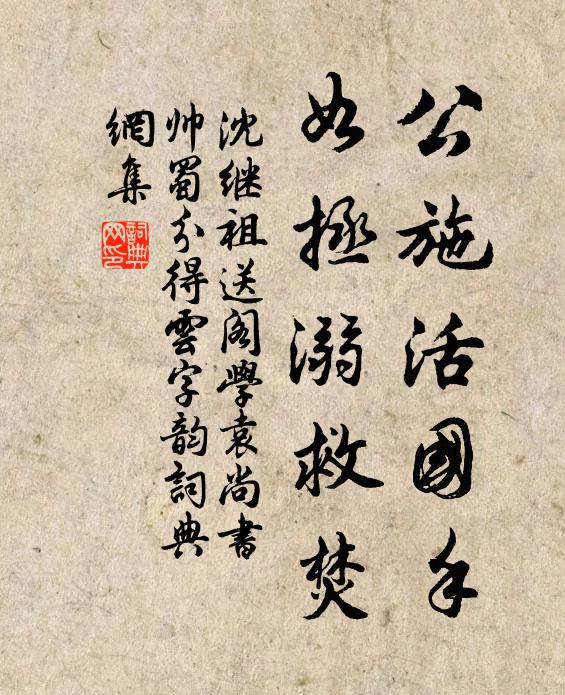 公施活國手
如拯溺救焚
沈继祖送阁學袁尚書
帅蜀分得雲字韵詞典
網集
詞典
网印